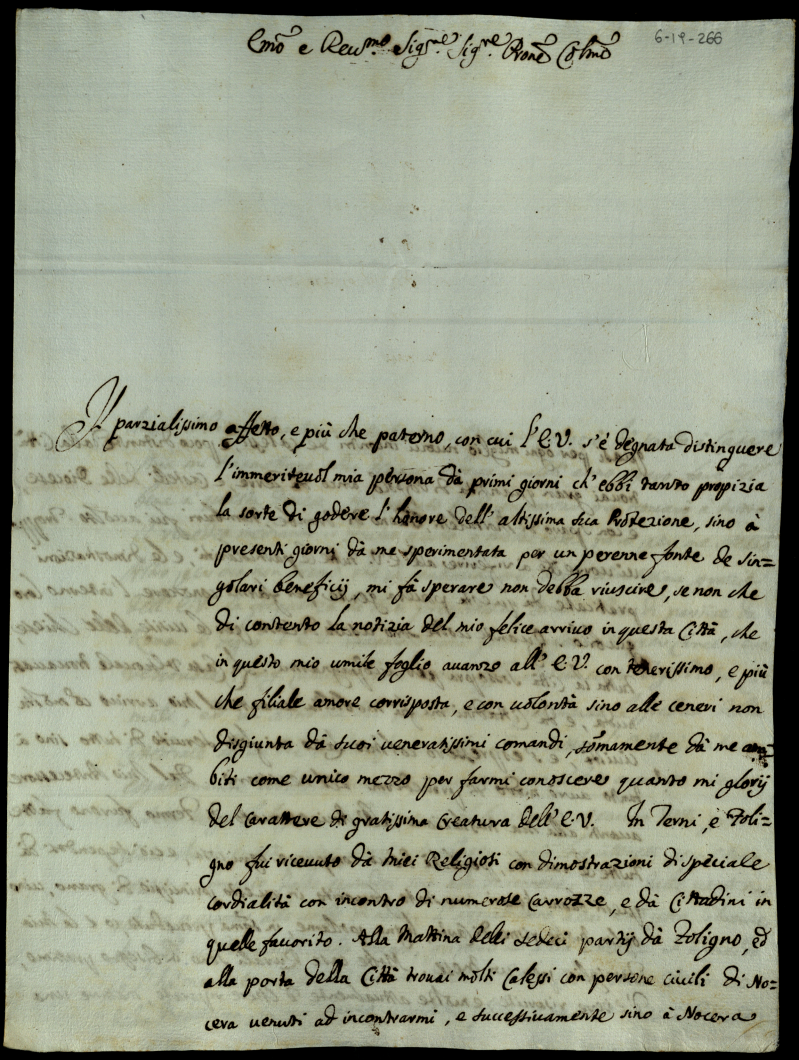 6-19-266
Emõ e Reu.mo Sig.re Sig.re Pronẽ Cõlmõ
Il parzialissimo affetto, e più che paterno, con cui l'E.V. s'è degnata distinguere
l'immeriteuol mia persona dà primi giorni ch'ebbi tanto propizia
la sorte di godere l'honore dell'altissima sua Protezione, sino à
presenti giorni dà me sperimentata per un perenne fonte de sin=
golari beneficij, mi fà sperare non debba riuscire, se non che
di contento la notizia del mio felice arriuo in questa Città, che
in questo mio umile foglio auanzo all'E.V. con tenerissimo, e più
che filiale amore corrisposta, e con uolontà sino alle ceneri non
disgiunta dà suoi ueneratissimi comandi, sõmamente dà me am=
biti come unico mezzo per farmi conoscere quanto mi glorij
del carattere di gratissima creatura dell'E.V. In Terni, e Foli=
gno fui riceuuto dà miei Religiosi con dimostrazioni di speciale
cordialità con incontro di numerose Carrozze, e dà Cittadini in
quelle fauorito. Alla Mattina delli sedeci partij dà Foligno, ed
alla porta della Città trouai molti Calessi con persone ciuili di No=
cera uenuti ad incontrarmi, e successiuamente sino à Nocera